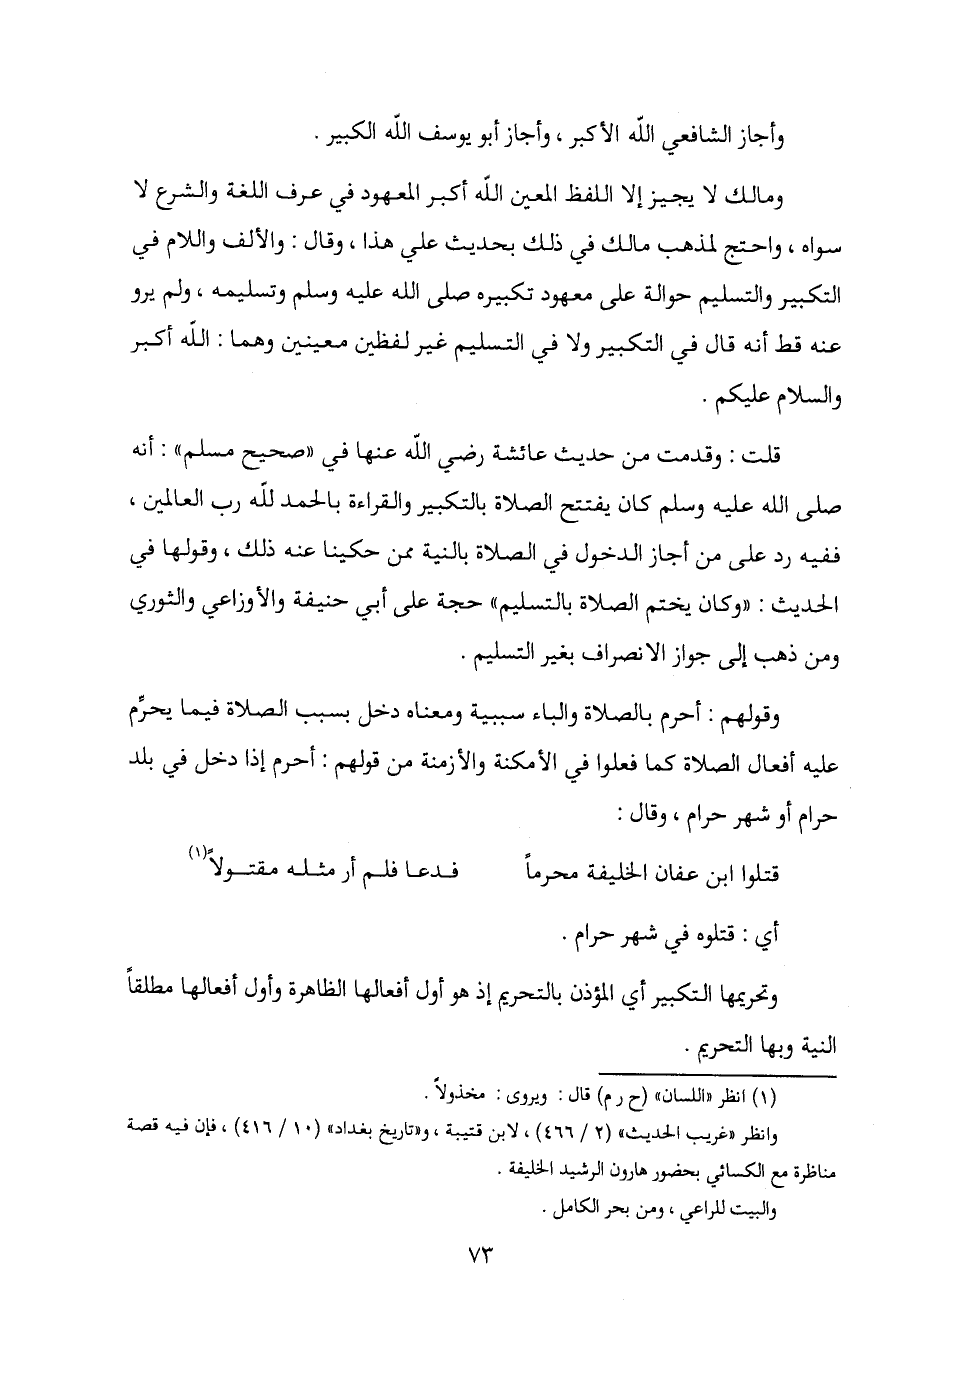 وأجاز الشافعي اللّه الأكبر ، وأجاز أبو يوسف اللّه الكبير .
ومالك لا يجيز إلا اللفظ المعين اللّه أكبر المعهود في عرف اللغة والشرع لا
سواه ، واحتج لمذهب مالك في ذلك بحديث علي هذا ، وقال : والألف واللام في
التكبير والتسليم حوالة على معهود تكبيره صلى الله عليه وسلم وتسليمه ، ولم يرو
عنه قط أنه قال في التكبير ولا في التسليم غير لفظين معينين وهما : اللّه أكبر
والسلام عليكم .
قلت : وقدمت من حديث عائشة رضي اللّه عنها في «صحيح مسلم» : أنه
صلى الله عليه وسلم كان يفتتح الصلاة بالتكبير والقراءة بالحمد للّه رب العالمين ،
ففيه رد على من أجاز الدخول في الصلاة بالنية ممن حكينا عنه ذلك ، وقولها في
الحديث : «وكان يختم الصلاة بالتسليم» حجة على أبي حنيفة والأوزاعي والثوري
ومن ذهب إلى جواز الانصراف بغير التسليم .
وقولهم : أحرم بالصلاة والباء سببية ومعناه دخل بسبب الصلاة فيما يحرِّم
عليه أفعال الصلاة كما فعلوا في الأمكنة والأزمنة من قولهم : أحرم إذا دخل في بلد
حرام أو شهر حرام ، وقال :
قتلوا ابن عفان الخليفة محرماً فدعا فلم أر مثله مقتولاً(١)
أي : قتلوه في شهر حرام .
وتحريمها التكبير أي المؤذن بالتحريم إذ هو أول أفعالها الظاهرة وأول أفعالها مطلقاً
النية وبها التحريم .
(١) انظر «اللسان» (ح ر م) قال : ويروى : مخذولاً .
وانظر «غريب الحديث» (٢ / ٤٦٦) ، لابن قتيبة ، و«تاريخ بغداد» (١٠ / ٤١٦) ، فإن فيه قصة
مناظرة مع الكسائي بحضور هارون الرشيد الخليفة .
والبيت للراعي ، ومن بحر الكامل .
٧٣